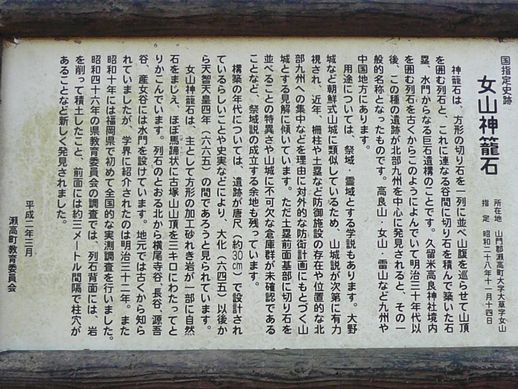 国指定史跡
女山神籠石
所在地 山門郡瀬高町大字大草字女山
指定 昭和二十八年十一月十四日
神籠石は、方形の切り石を一列に並べ山腹を巡らせて山頂
を囲む列石と、これに連なる谷間に切り石を積んで築いた石
塁、水門からなる巨石遺構のことです。久留米高良神社境内
を囲む列石を古くからこのようによんでいて明治三十年代以
後、この種の遺跡が北部九州を中心に発見されると、その一
般的名称となったものです。高良山・女山・雷山など九州や
中国地方にあります。
用途については、祭域・霊域とする学説もあります。大野
城など朝鮮式山城に類似しているため、山城説が次第に有力
視され、近年、柵柱や土塁など防御施設の存在や位置的な北
部九州への集中などを理由に対外的な防衛計画にもとづく山
城とする見解に傾いています。ただ土塁前面基部に切り石を
並べることの特異さや山城に不可欠な倉庫群が未確認である
ことなど、祭域説の成立する余地も残っています。
構築の年代については、遺跡が唐尺(約30cm)で設計され
ているらしいことや史実などにより、大化(六四五)以後か
ら天智天皇四年(六六五)の間であろうと見られています。
女山神籠石は、主として方形の加工砂れき岩が一部に自然
石をまじえ、ほぼ馬蹄状に古塚山山頂を三キロにわたってと
りかこんでいます。列石のとおる北から横尾寺谷、長谷、源吾
谷、産女谷には水門を設けています。地元では古くから知ら
れていましたが、学界に紹介されたのは明治三十二年。また
昭和十年には福岡県で初めて全国的な実測調査を行いました。
昭和四十六年の県教育委員会の調査では、列石背面には、岩
を削って積土したこと、前面には約三メートル間隔で柱穴が
あることなど新しく発見されました。
平成二年三月
瀬高町教育委員会